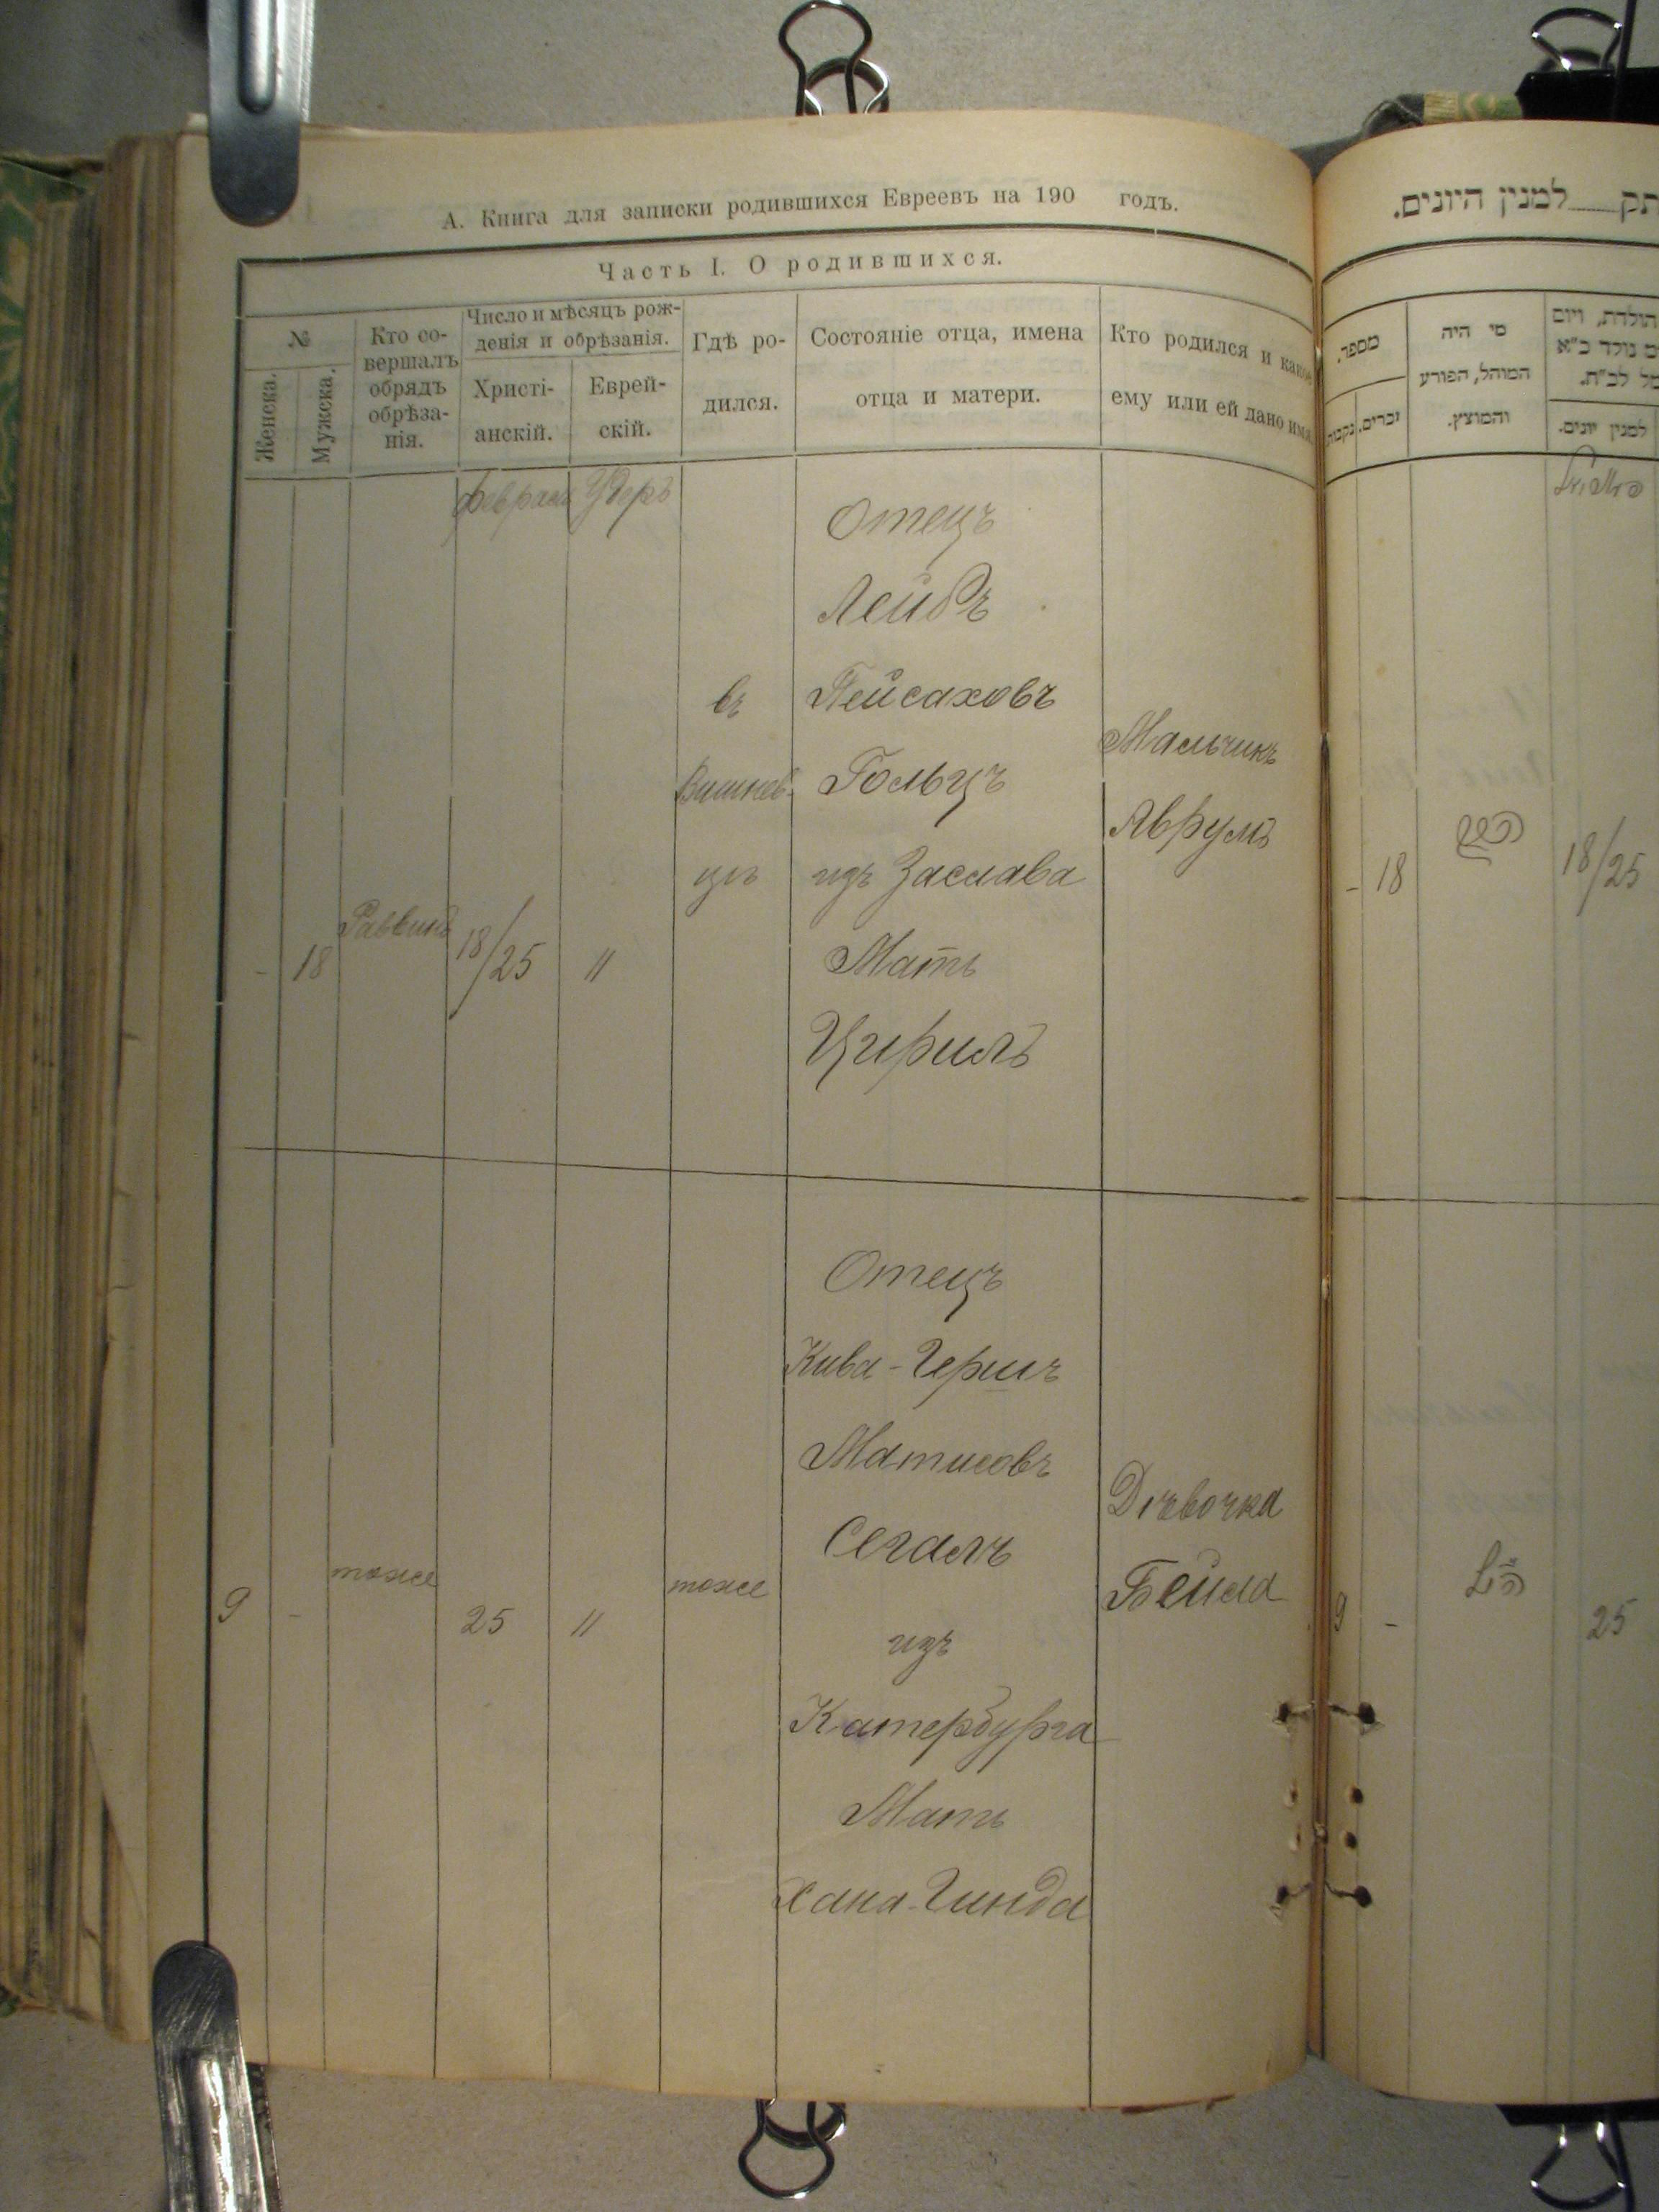 А. Книга для записки родившихся Евреевъ на 190 годъ.
Часть I. О родившихся.
№
Женска.
Мужска.
Кто со-
вершалъ
обрядъ
обрѣза-
нія.
Число и мѣсяцъ рож-
денія и обрѣзанія.
Христі-
анскій.
Еврей-
скій.
Гдѣ ро-
дился.
Состояніе отца, имена
отца и матери.
Кто родился и какое
ему или ей дано имя.
Февраля
Отецъ
Лейбъ
Пейсаховъ
Гольцъ
изъ Заслава
Мать
въ
Вишнев-
цѣ
Мальчикъ
Аврумъ
- 18 Раввинъ 18/25 "
Цириль
Отецъ
Кива-Гершъ
Матисовъ
Сегалъ
изъ
Катербурга
Мать
Хана-Гинда
Дѣвочка
Бейла
9 - тоже 25 " тоже
תק למנין היונים.
מספר.
נקבות
זכרים.
מי היה
המוהל, הפורע
והמוצץ.
הולדת, ויום
למנין יונים.
- 18
18/25
9 -
25